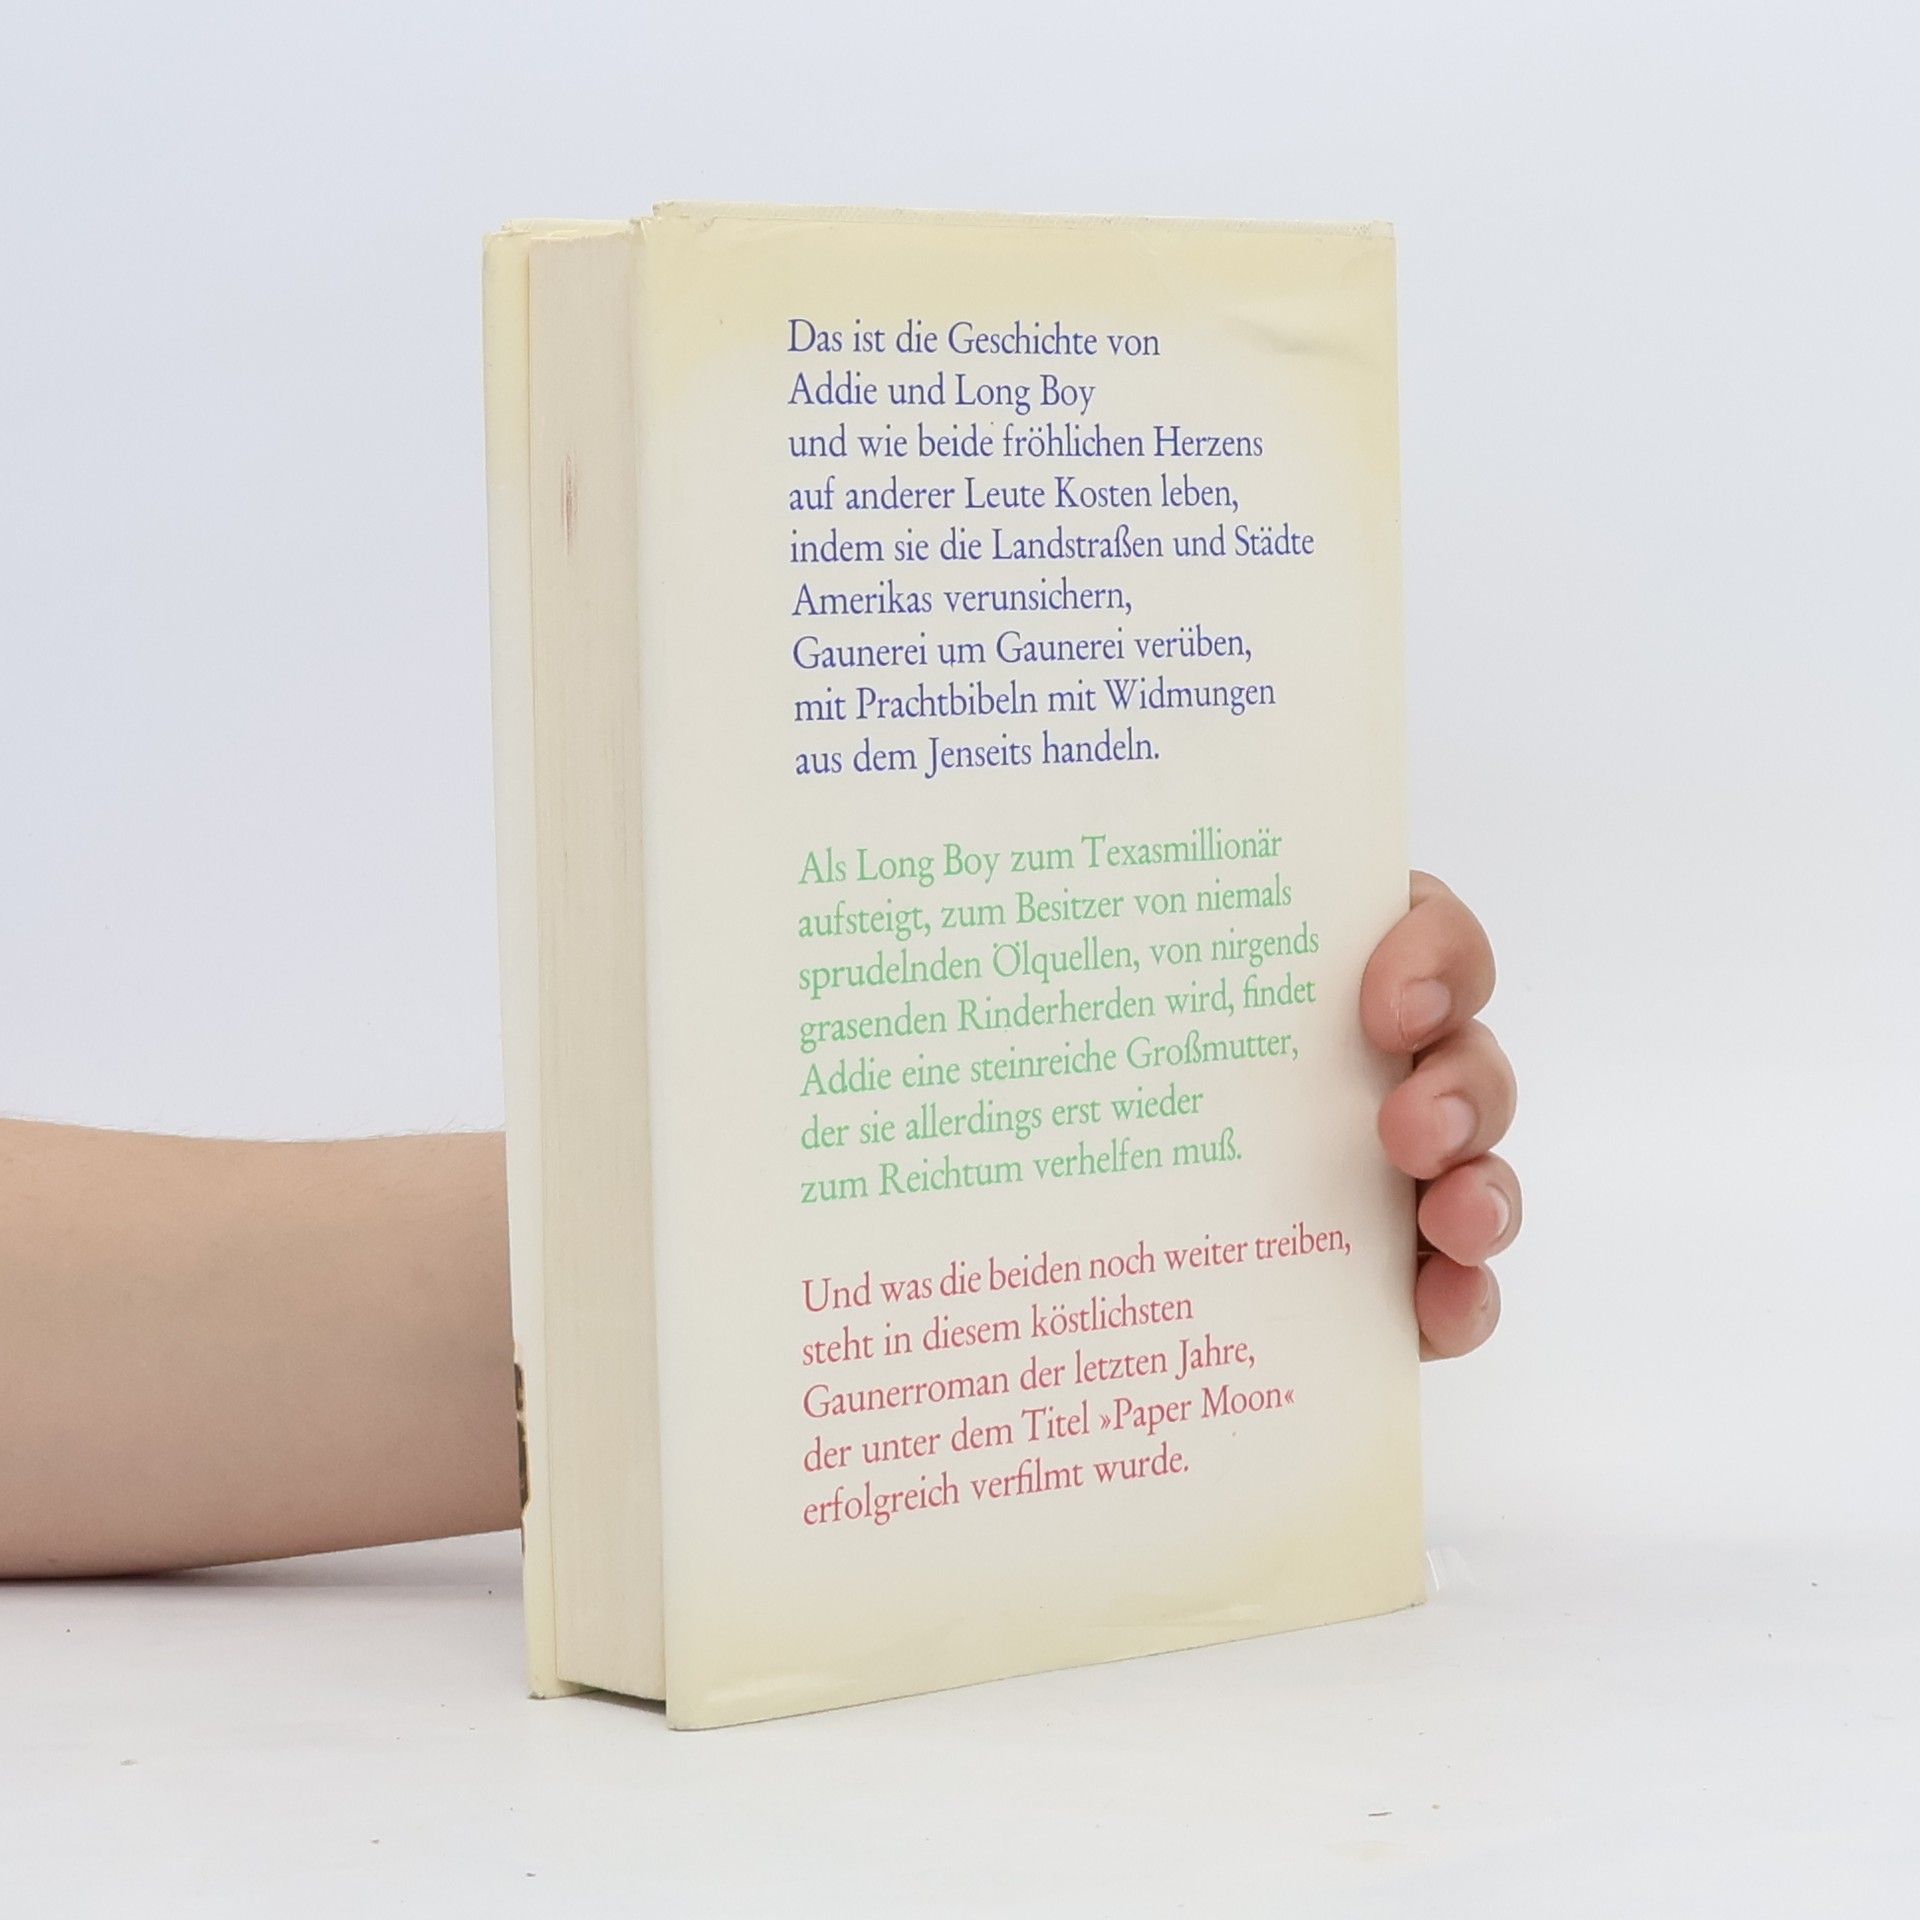 Das ist die Geschichte von
Addie und Long Boy
und wie beide fröhlichen Herzens
auf anderer Leute Kosten leben,
indem sie die Landstraßen und Städte
Amerikas verunsichern,
Gaunerei um Gaunerei verüben,
mit Prachtbibeln mit Widmungen
aus dem Jenseits handeln.
Als Long Boy zum Texasmillionär
aufsteigt, zum Besitzer von niemals
sprudelnden Ölquellen, von nirgends
grasenden Rinderherden wird, findet
Addie eine steinreiche Großmutter,
der sie allerdings erst wieder
zum Reichtum verhelfen muß.
Und was die beiden noch weiter treiben,
steht in diesem köstlichsten
Gaunerroman der letzten Jahre,
der unter dem Titel »Paper Moon«
erfolgreich verfilmt wurde.